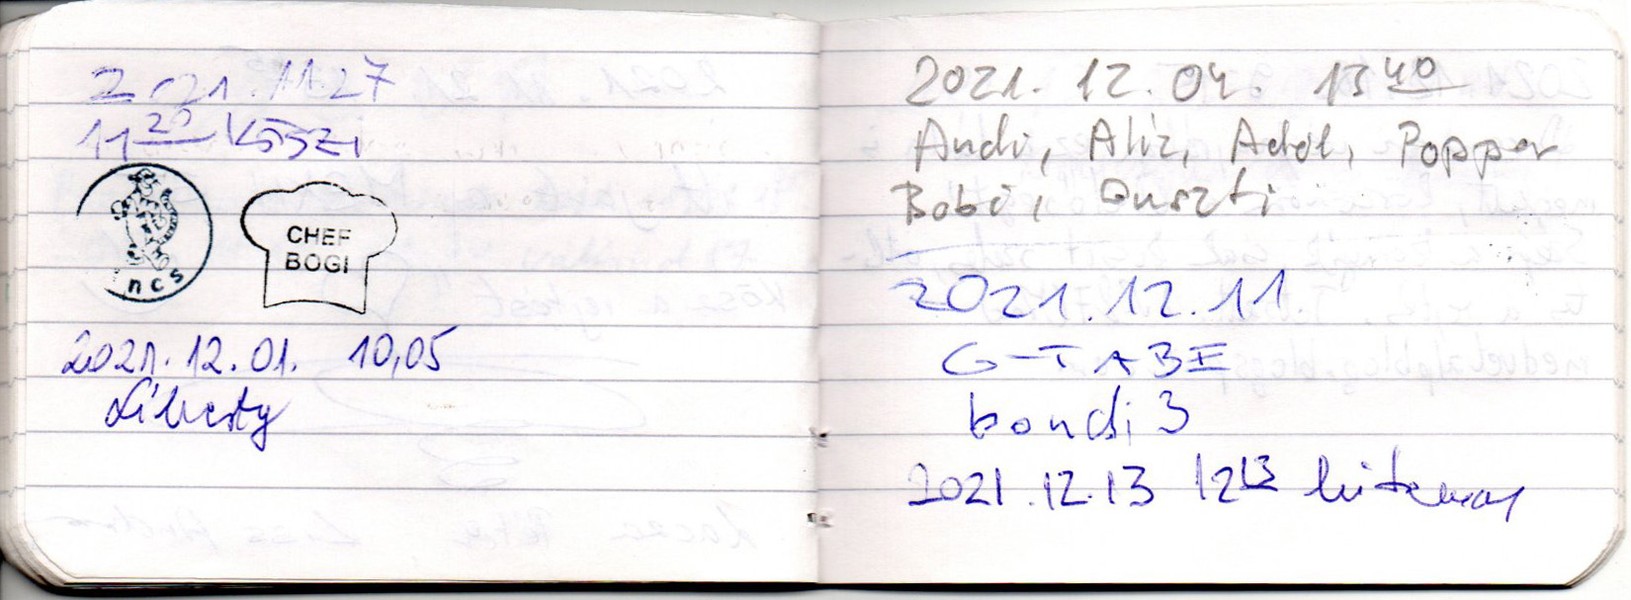 2021.11.27
11²⁰ KÖSZI
ncs
CHEF
BOGI
2021.12.01. 10,05
Liberty
2021.12.04. 13⁴⁰
Andi, Aliz, Adél, Popper
Bobó, Guszti
2021.12.11
G-TABE
bondi3
2021.12.13 12¹³